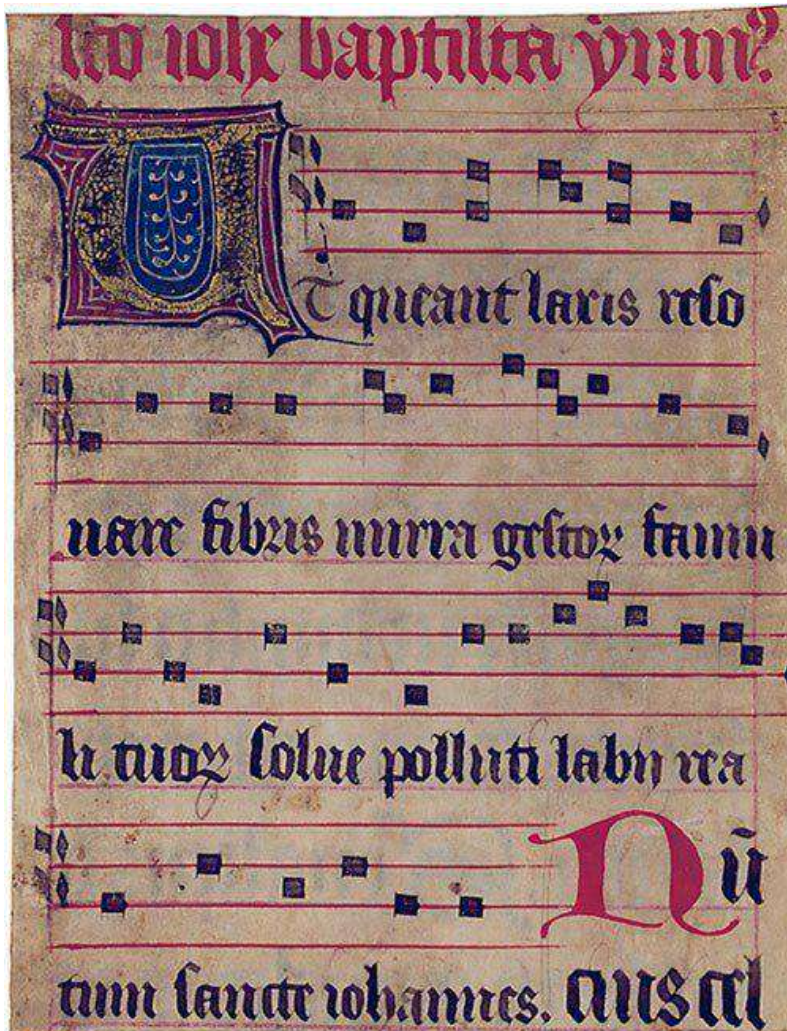 sco ioh̅e baptista ymn⁹
UT queant laxis reso
nare fibris mirra gestoꝝ famu
li tuoꝝ solue polluti labij rea
Nū
tum sancte iohannes. cius cel